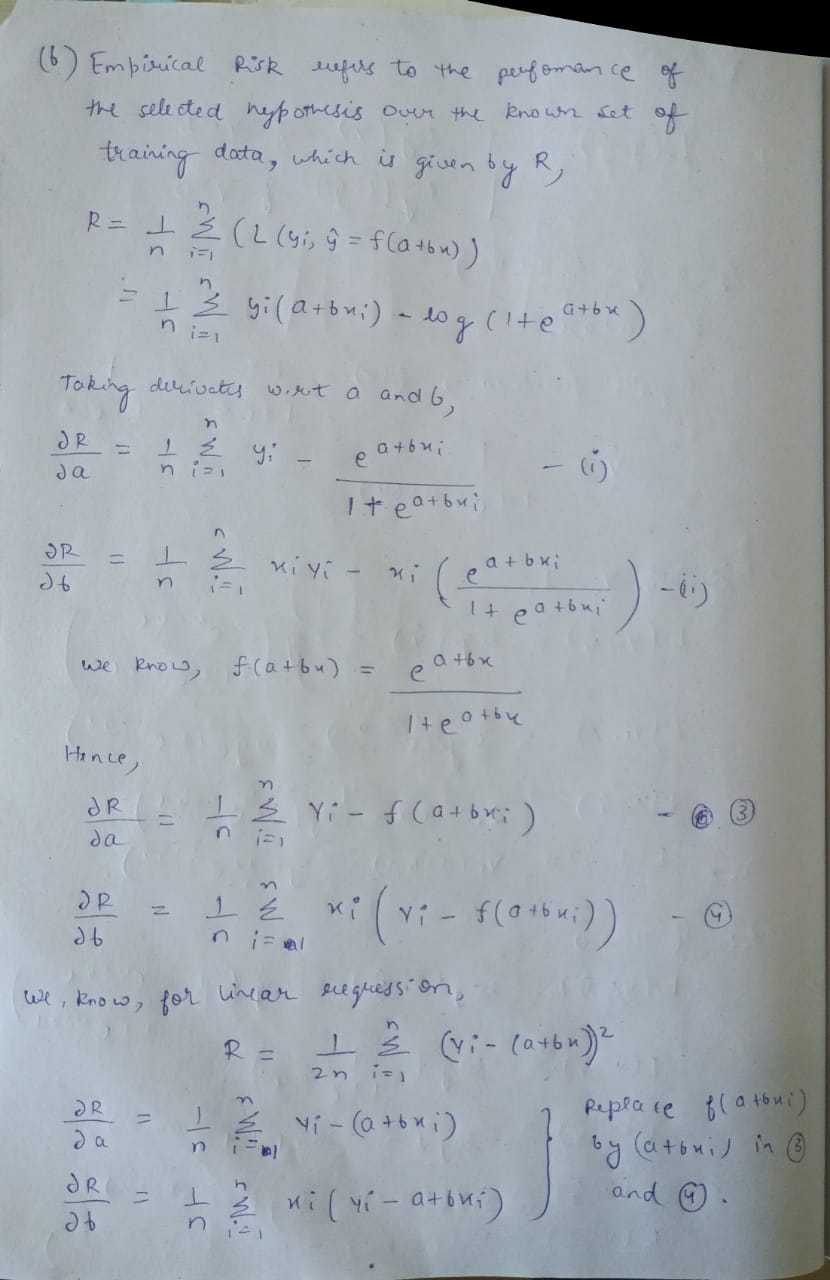 (b) Empirical Risk refers to the perfomance of
the selected hypothesis over the known set of
training data, which is given by R,
R = 1/n Σ_{i=1}^{n} (L (yi, ŷ = f(a+bx))
= 1/n Σ_{i=1}^{n} yi(a+bxi) - log (1+e^{a+bx})
Taking derivates w.r.t a and b,
∂R/∂a = 1/n Σ_{i=1}^{n} yi - e^{a+bxi}/(1+e^{a+bxi}) - (i)
∂R/∂b = 1/n Σ_{i=1}^{n} xiyi - xi (e^{a+bxi}/(1+e^{a+bxi})) -(ii)
we know, f(a+bx) = e^{a+bx}/(1+e^{a+bx})
Hence,
∂R/∂a = 1/n Σ_{i=1}^{n} Yi - f(a+bxi) - ③
∂R/∂b = 1/n Σ_{i=1}^{n} xi (Yi - f(a+bxi)) - ④
We, know, for linear regression,
R = 1/2n Σ_{i=1}^{n} (Yi - (a+bx))²
∂R/∂a = 1/n Σ_{i=1}^{n} Yi - (a+bxi)
∂R/∂b = 1/n Σ_{i=1}^{n} xi (yi - a+bxi)
} Replace f(a+bxi)
by (a+bxi) in ③
and ④.